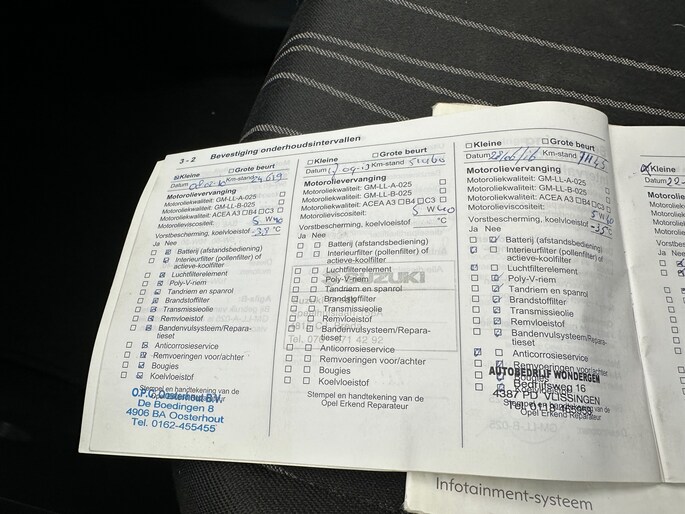 3 - 2 Bevestiging onderhoudsintervallen
Kleine Grote beurt
Datum Km-stand
Motorolievervanging
Motoroliekwaliteit: GM-LL-A-025
Motoroliekwaliteit: GM-LL-B-025
Motoroliekwaliteit: ACEA A3 B4 C3
Motorolieviscositeit: 5 W 40
Vorstbescherming, koelvloeistof °C
Ja Nee
Batterij (afstandsbediening)
Interieurfilter (pollenfilter) of
actieve-koolfilter
Luchtfilterelement
Poly-V-riem
Tandriem en spanrol
Brandstoffilter
Transmissieolie
Remvloeistof
Bandenvulsysteem/Repara-
tieset
Anticorrosieservice
Remvoeringen voor/achter
Bougies
Koelvloeistof
Stempel en handtekening van de
O.P.C. Oosterhout B.V.
De Boedingen 8
4906 BA Oosterhout
Tel. 0162-455455
Kleine Grote beurt
Datum Km-stand
Motorolievervanging
Motoroliekwaliteit: GM-LL-A-025
Motoroliekwaliteit: GM-LL-B-025
Motoroliekwaliteit: ACEA A3 B4 C3
Motorolieviscositeit: 5 W 40
Vorstbescherming, koelvloeistof °C
Ja Nee
Batterij (afstandsbediening)
Interieurfilter (pollenfilter) of
actieve-koolfilter
Luchtfilterelement
SUZUKI
Poly-V-riem
Tandriem en spanrol
Brandstoffilter
Transmissieolie
Remvloeistof
Bandenvulsysteem/Repara-
tieset
Anticorrosieservice
Remvoeringen voor/achter
Bougies
Koelvloeistof
Stempel en handtekening van de
Opel Erkend Reparateur
Kleine Grote beurt
Datum 28/06/16 Km-stand
Motorolievervanging
Motoroliekwaliteit: GM-LL-A-025
Motoroliekwaliteit: GM-LL-B-025
Motoroliekwaliteit: ACEA A3 B4 C3
Motorolieviscositeit: 5 W 40
Vorstbescherming, koelvloeistof -35 °C
Ja Nee
Batterij (afstandsbediening)
Interieurfilter (pollenfilter) of
actieve-koolfilter
Luchtfilterelement
Poly-V-riem
Tandriem en spanrol
Brandstoffilter
Transmissieolie
Remvloeistof
Bandenvulsysteem/Repara-
tieset
Anticorrosieservice
Remvoeringen voor/achter
Bougies
AUTOBEDRIJF WONDERGEM
Bedrijfsweg 16
4387 PD VLISSINGEN
Opel Erkend Reparateur
Kleine
Datum
Motorolie
Infotainment-systeem